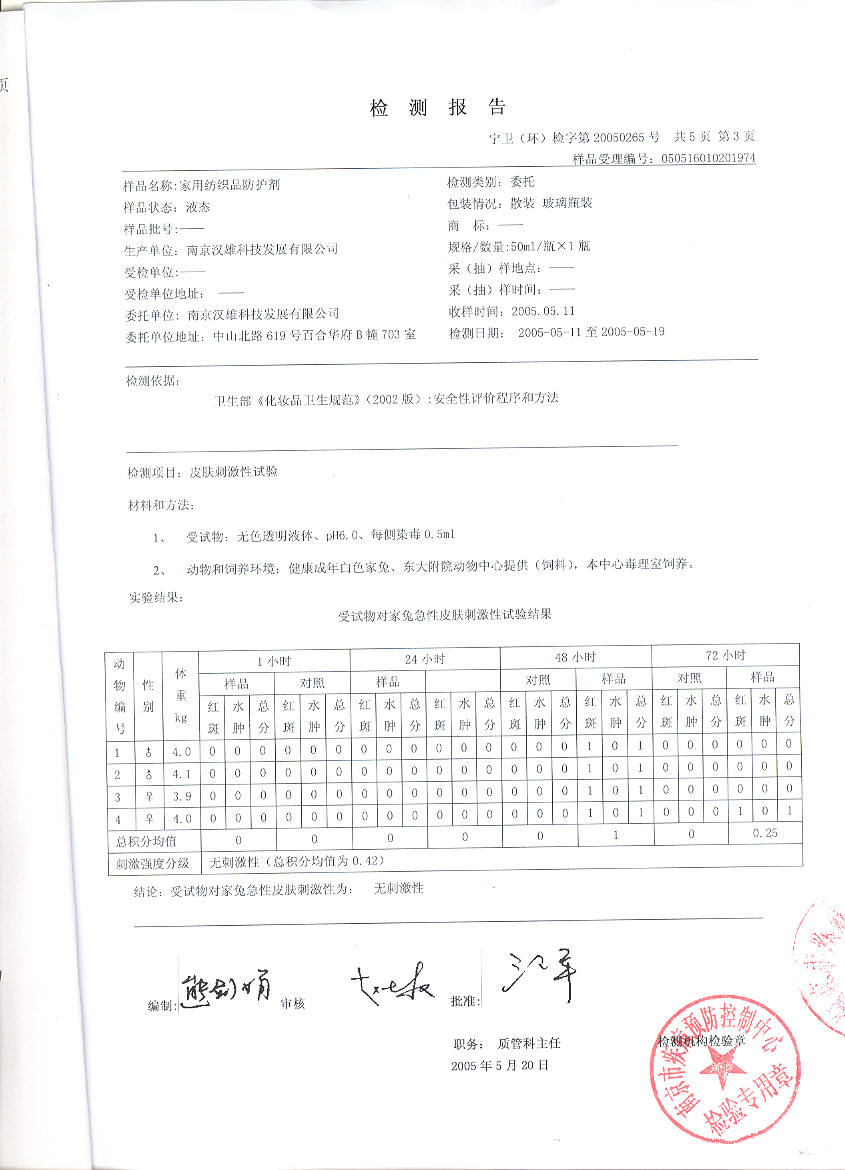 页
检 测 报 告
宁卫（环）检字第 20050265 号 共 5 页 第 3 页
样品受理编号：050516010201974
样品名称:家用纺织品防护剂 检测类别：委托
样品状态：液态 包装情况：散装 玻璃瓶装
样品批号:—— 商 标：——
生产单位：南京汉雄科技发展有限公司 规格/数量:50ml/瓶×1 瓶
受检单位:—— 采（抽）样地点：——
受检单位地址： —— 采（抽）样时间：——
委托单位：南京汉雄科技发展有限公司 收样时间：2005.05.11
委托单位地址：中山北路 619 号百合华府 B 幢 703 室 检测日期： 2005-05-11 至 2005-05-19
检测依据：
卫生部《化妆品卫生规范》（2002 版）:安全性评价程序和方法
检测项目：皮肤刺激性试验
材料和方法：
1、 受试物：无色透明液体、pH6.0、每侧染毒 0.5ml
2、 动物和饲养环境：健康成年白色家兔、东大附院动物中心提供（饲料），本中心毒理室饲养。
实验结果：
受试物对家兔急性皮肤刺激性试验结果
动物编号 性别 体重kg 1 小时 24 小时 48 小时 72 小时
样品 对照 样品 对照 样品 对照 样品
红斑 水肿 总分 红斑 水肿 总分 红斑 水肿 总分 红斑 水肿 总分 红斑 水肿 总分 红斑 水肿 总分 红斑 水肿 总分 红斑 水肿 总分
1 ♂ 4.0 0 0 0 0 0 0 0 0 0 0 0 0 0 0 0 1 0 1 0 0 0 0 0 0
2 ♂ 4.1 0 0 0 0 0 0 0 0 0 0 0 0 0 0 0 1 0 1 0 0 0 0 0 0
3 ♀ 3.9 0 0 0 0 0 0 0 0 0 0 0 0 0 0 0 1 0 1 0 0 0 0 0 0
4 ♀ 4.0 0 0 0 0 0 0 0 0 0 0 0 0 0 0 0 1 0 1 0 0 0 1 0 1
总积分均值 0 0 0 0 0 1 0 0.25
刺激强度分级 无刺激性（总积分均值为 0.42）
结论：受试物对家兔急性皮肤刺激性为： 无刺激性
编制: 审核 批准:
职务： 质管科主任 检测机构检验章
2005 年 5 月 20 日
南京市疾病预防控制中心
检验专用章